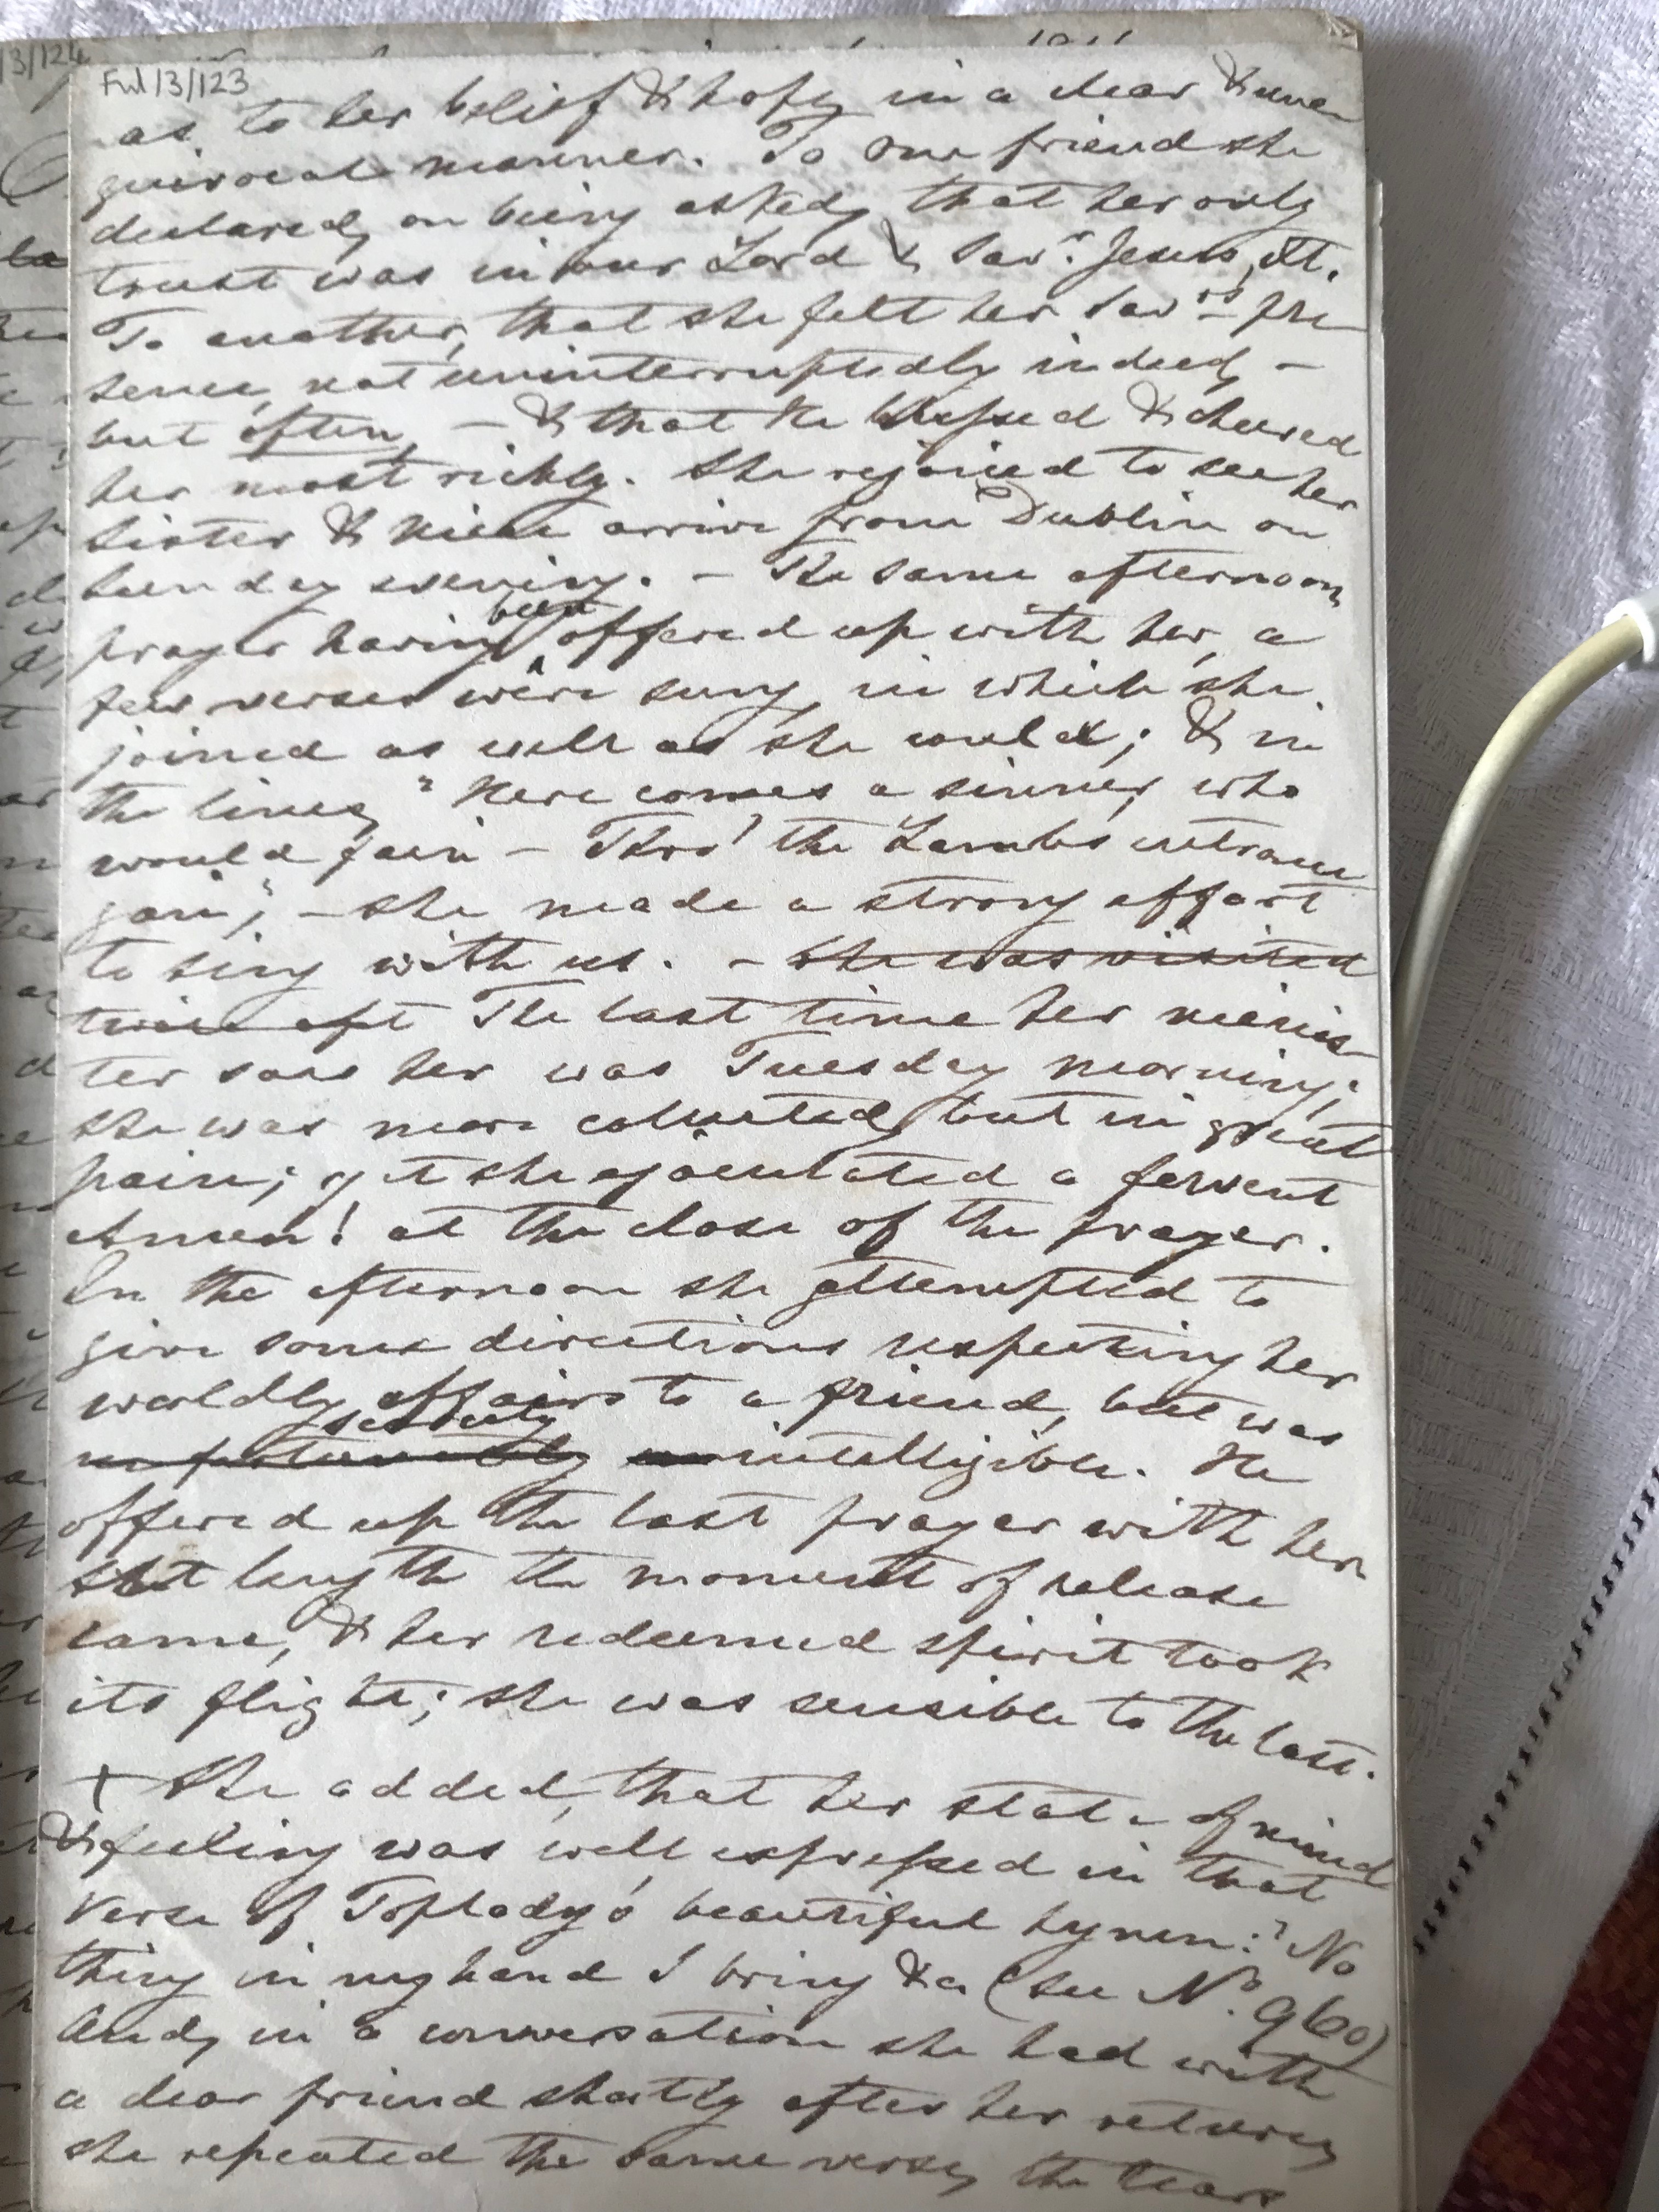 13/124
Ful 13/123
as to her belief & hope, in a clear & une-
quivocal manner. To one friend she
declared, on being asked, that her only
trust was in our Lord & Savr. Jesus Xt.
To another, that she felt her Savrs pre-
sence, not uninterruptedly indeed, -
but often, - & that He blessed & cheered
her most richly. She rejoiced to see her
sister & niece arrive from Dublin on
Sunday evening. - The same afternoon,
prayer having been offered up with her, a
few verses were sung, in which she
joined as well as she could; & in
the lines, "Here comes a sinner, who
would fain - Thro' the Lambs entrance
gain," - she made a strong effort
to sing with us. - She was visited
twice aft The last time her minis-
ter saw her was Tuesday morning;
she was more collected, but in great
pain; yet she ejaculated a fervent
Amen! at the close of the prayer.
In the afternoon she attempted to
give some directions respecting her
worldly affairs to a friend, but was
scarcely
unfortunately unintelligible. He
offered up the last prayer with her
At length the moment of release
came, & her redeemed spirit took
its flight; she was sensible to the last.
+ She added, that her state of mind
& feeling was well expressed in that
verse of Toplady's beautiful hymn: "No
thing in my hand I bring &c (see No. 960)
And, in a conversation she had with
a dear friend shortly after her return,
she repeated the same verse, the tears